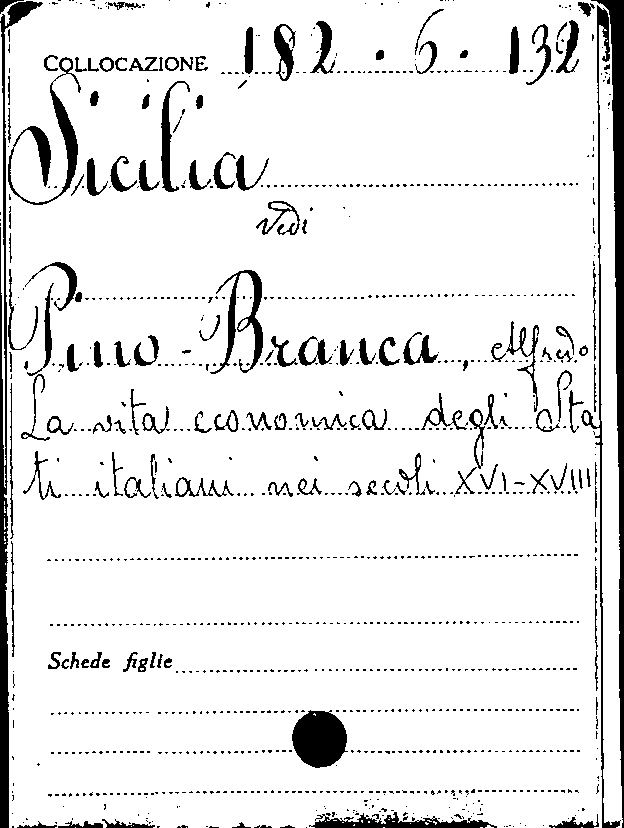 COLLOCAZIONE 182 . 6 . 132
Sicilia
Vedi
Pino - Branca, Alfredo
La vita economica degli Sta
ti italiani nei secoli XVI-XVIII
Schede figlie